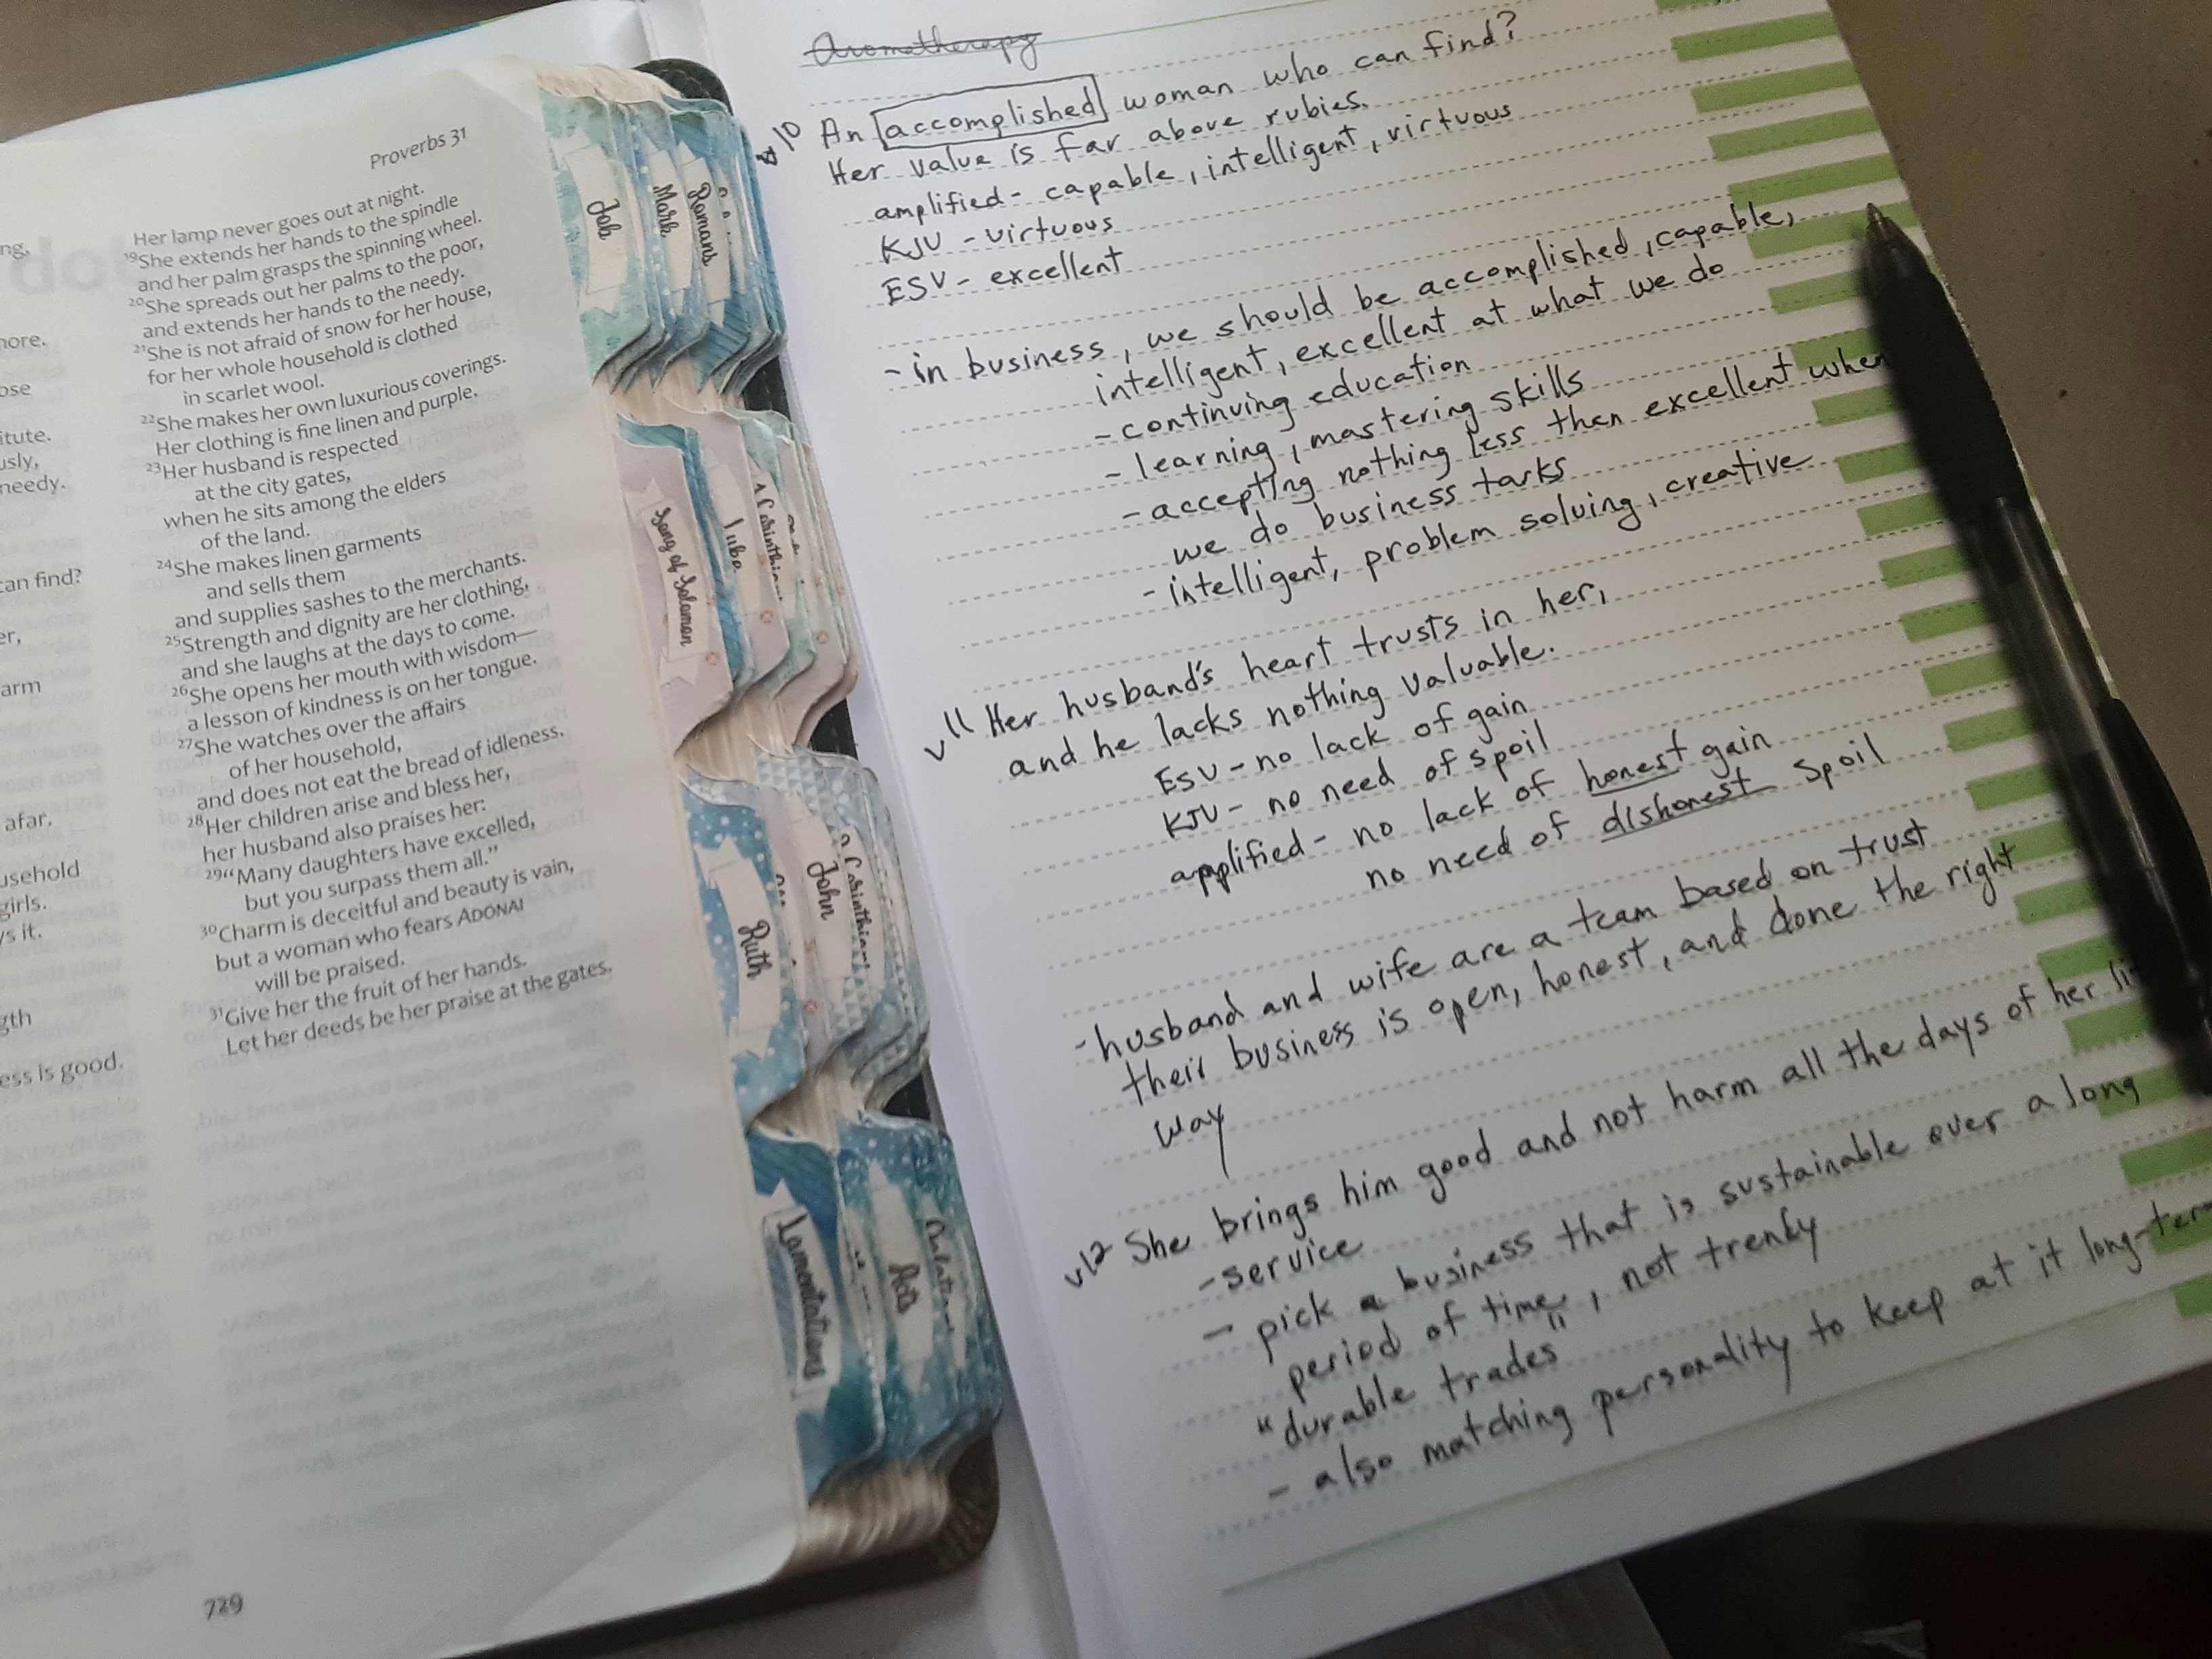 Proverbs 31
Her lamp never goes out at night.
19She extends her hands to the spindle
and her palm grasps the spinning wheel.
20She spreads out her palms to the poor,
and extends her hands to the needy.
21She is not afraid of snow for her house,
for her whole household is clothed
in scarlet wool.
22She makes her own luxurious coverings.
Her clothing is fine linen and purple.
23Her husband is respected
at the city gates,
when he sits among the elders
of the land.
24She makes linen garments
and sells them
and supplies sashes to the merchants.
25Strength and dignity are her clothing,
and she laughs at the days to come.
26She opens her mouth with wisdom—
a lesson of kindness is on her tongue.
27She watches over the affairs
of her household,
and does not eat the bread of idleness.
28Her children arise and bless her,
her husband also praises her:
29“Many daughters have excelled,
but you surpass them all.”
30Charm is deceitful and beauty is vain,
but a woman who fears ADONAI
will be praised.
31Give her the fruit of her hands.
Let her deeds be her praise at the gates.
729
can find?
arm
afar.
girls.
ess is good.
needy.
Job
Mark
Romans
Song of Solomon
Luke
Ruth
John
Lamentations
Acts
Aromatherapy
v10 An accomplished woman who can find?
Her value is far above rubies.
amplified - capable, intelligent, virtuous
KJV - virtuous
ESV - excellent
- in business, we should be accomplished, capable,
intelligent, excellent at what we do
- continuing education
- learning, mastering skills
- accepting nothing less than excellent when
we do business tasks
- intelligent, problem solving, creative
v11 Her husband's heart trusts in her,
and he lacks nothing valuable.
ESV - no lack of gain
KJV - no need of spoil
amplified - no lack of honest gain
no need of dishonest spoil
- husband and wife are a team based on trust
their business is open, honest, and done the right
way
v12 She brings him good and not harm all the days of her
- service
- pick a business that is sustainable over a long
period of time, not trendy
"durable trades"
- also matching personality to keep at it long-term